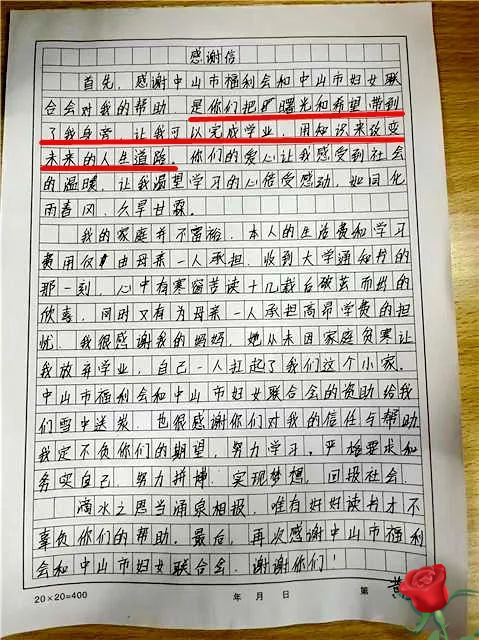 感谢信
首先，感谢中山市福利会和中山市妇女联
合会对我的帮助。是你们把曙光和希望带到
了我身旁，让我可以完成学业，用知识来改变
未来的人生道路。你们的爱心让我感受到社会
的温暖，让我渴望学习的心倍受感动，如同化
雨春风、久旱甘霖。
我的家庭并不富裕，本人的生活费和学习
费用仅由母亲一人承担。收到大学通知书的
那一刻，心中有寒窗苦读十几载台破茧而出的
欣喜，同时又有为母亲一人承担高昂学费的担
忧。我很感谢我的妈妈，她从未因家庭贫寒让
我放弃学业，自己一人扛起了我们这个小家。
中山市福利会和中山市妇女联合会的资助给我
们雪中送炭，也很感谢你们对我的信任与帮助
我定不负你们的期望，努力学习，严格要求和
务实自己，努力拼搏，实现梦想，回报社会。
滴水之恩当涌泉相报，唯有好好读书才不
辜负你们的帮助。最后，再次感谢中山市福利
会和中山市妇女联合会。谢谢你们！
20×20=400 年 月 日 第